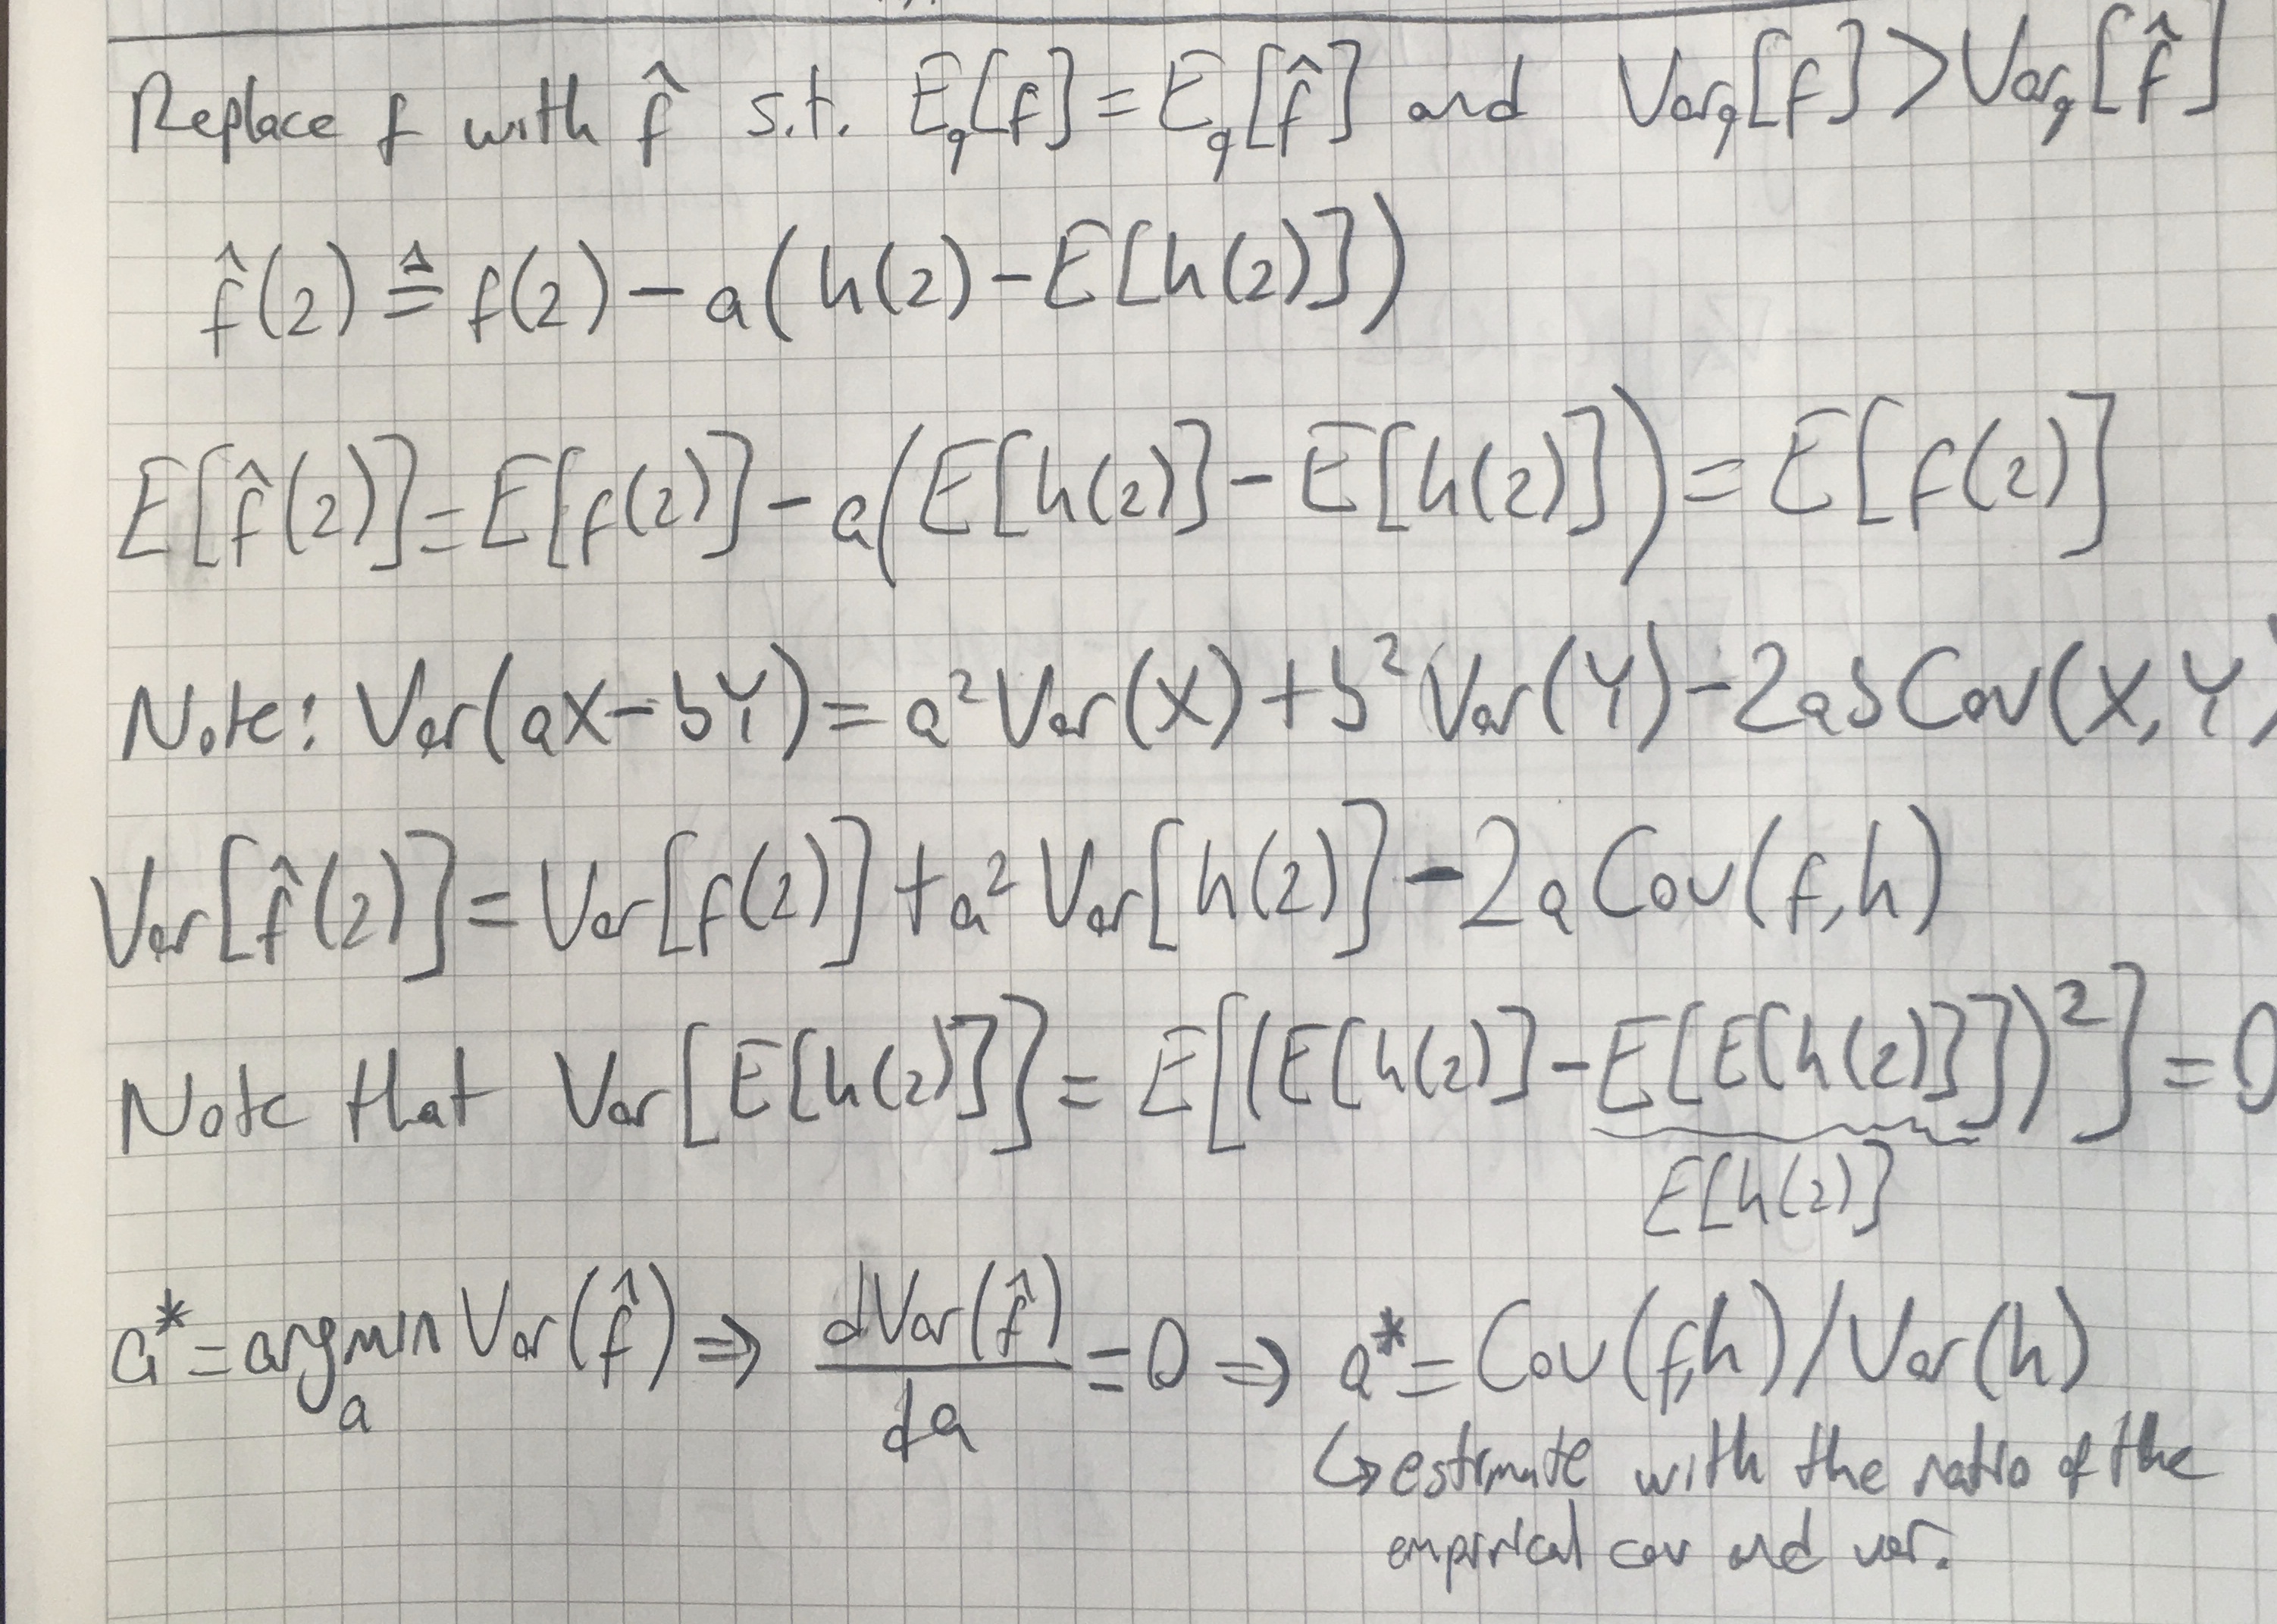 Replace f with f̂ s.t. E_q[f] = E_q[f̂] and Var_q[f] > Var_q[f̂]
f̂(z) ≜ f(z) - a(h(z) - E[h(z)])
E[f̂(z)] = E[f(z)] - a(E[h(z)] - E[h(z)]) = E[f(z)]
Note: Var(aX - bY) = a² Var(X) + b² Var(Y) - 2ab Cov(X, Y)
Var[f̂(z)] = Var[f(z)] + a² Var[h(z)] - 2a Cov(f,h)
Note that Var[E[h(z)]] = E[(E[h(z)] - E[E[h(z)]])²] = 0
E[h(z)]
a* = argmin_a Var(f̂) ⇒ dVar(f̂)/da = 0 ⇒ a* = Cov(f,h)/Var(h)
↳ estimate with the ratio of the
empirical cov and var.